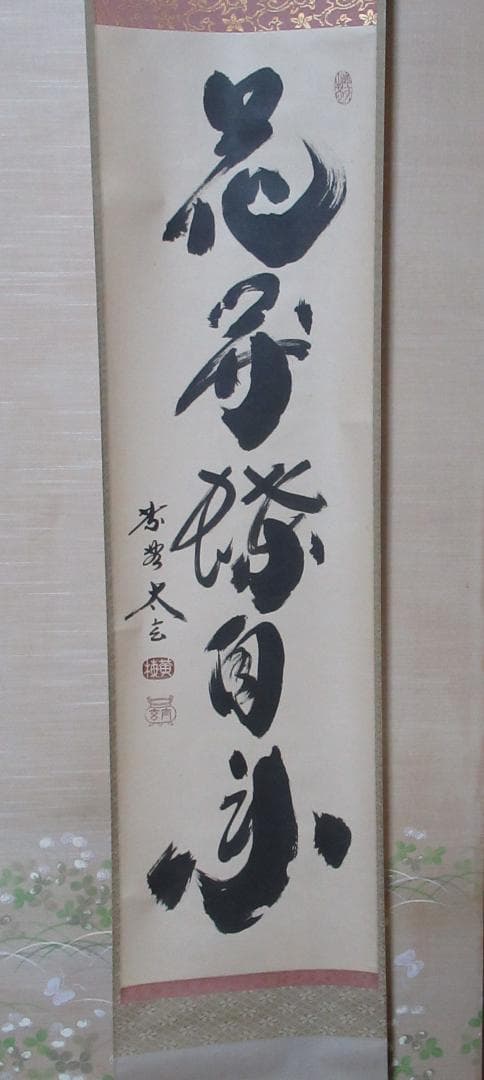 花開蝶自来
紫野 太玄